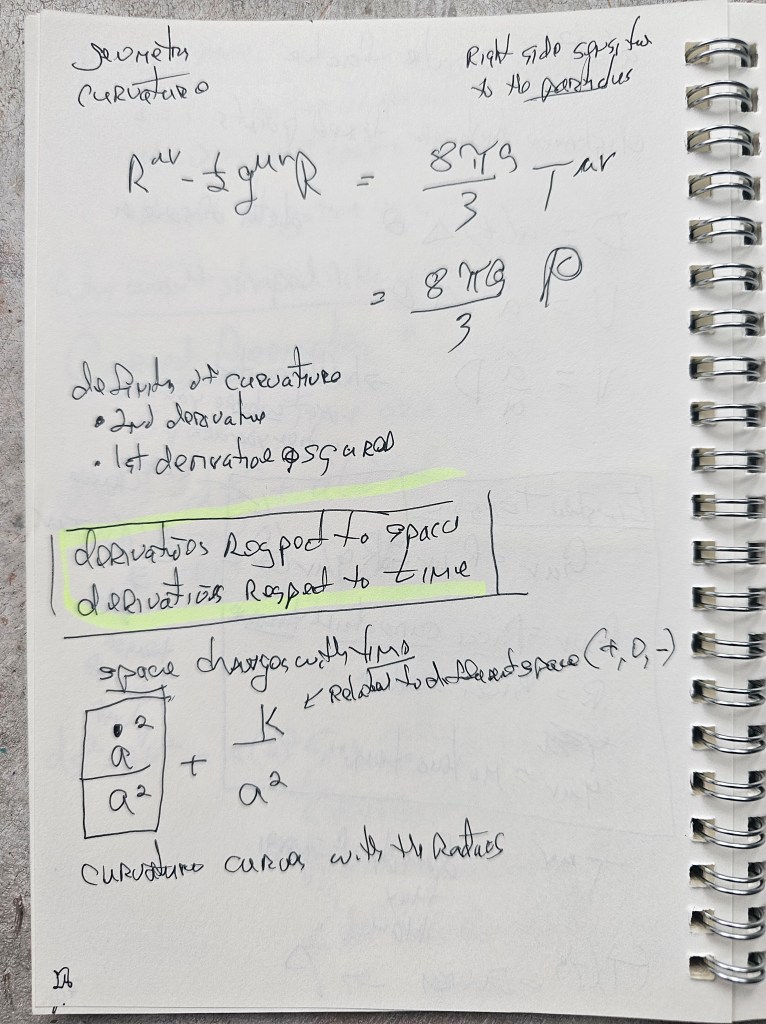 geometry
curvature
Right side
to the particles
R^μν - ½ g^μν R = 8πG/3 T^μν
= 8πG/3 ρ
definits of curvature
• 2nd derivative
• 1st derivative squared
derivatives Respect to space
derivatives Respect to time
space changes with time
← Related to different space (+, 0, -)
ȧ²/a² + K/a²
curvature curves with the Radius